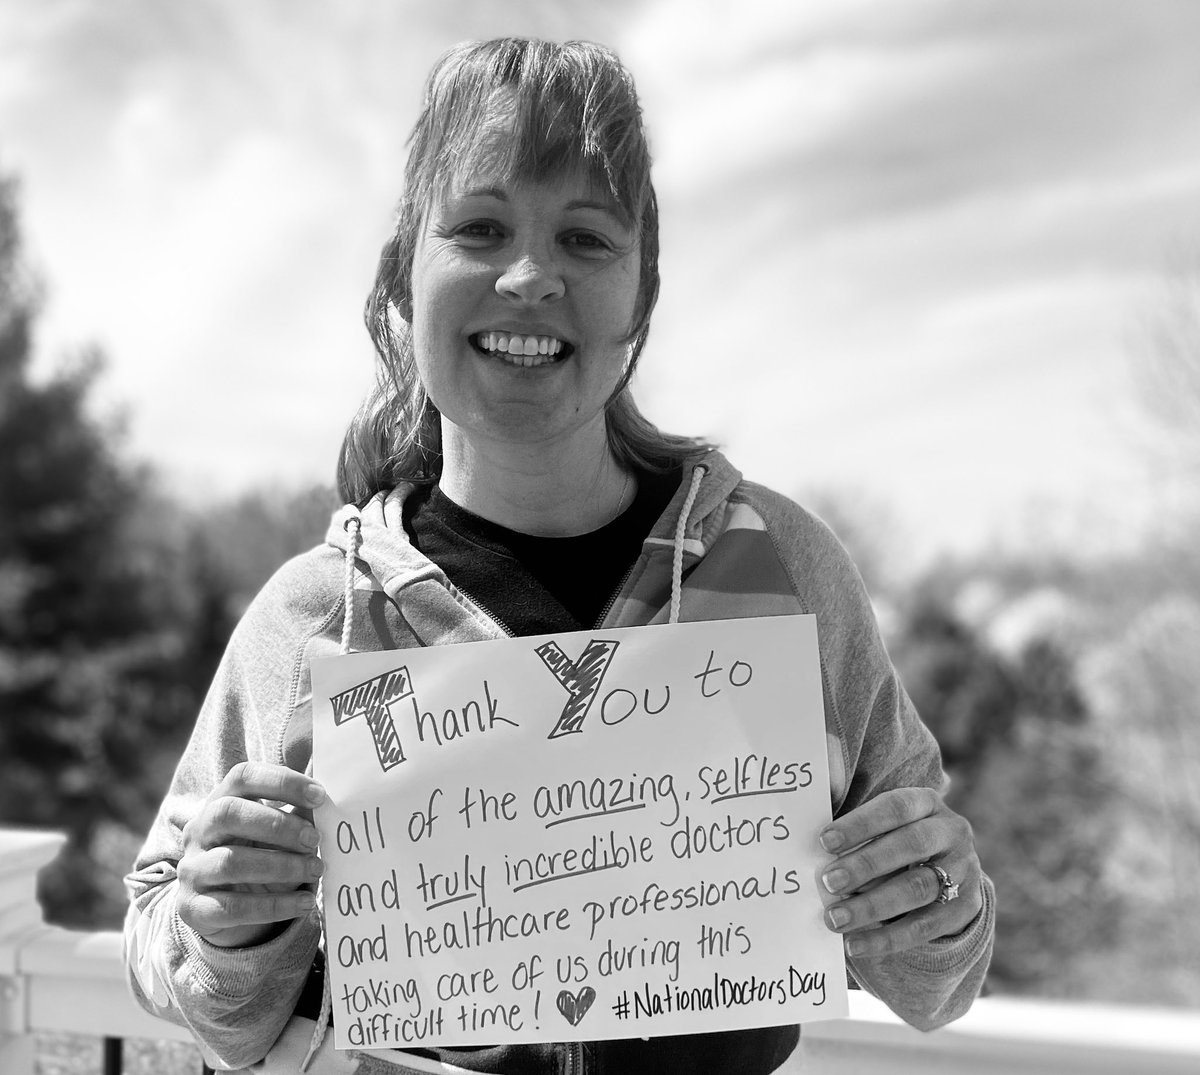 Thank You to
all of the amazing, selfless
and truly incredible doctors
and healthcare professionals
taking care of us during this
difficult time! ♥ #NationalDoctorsDay